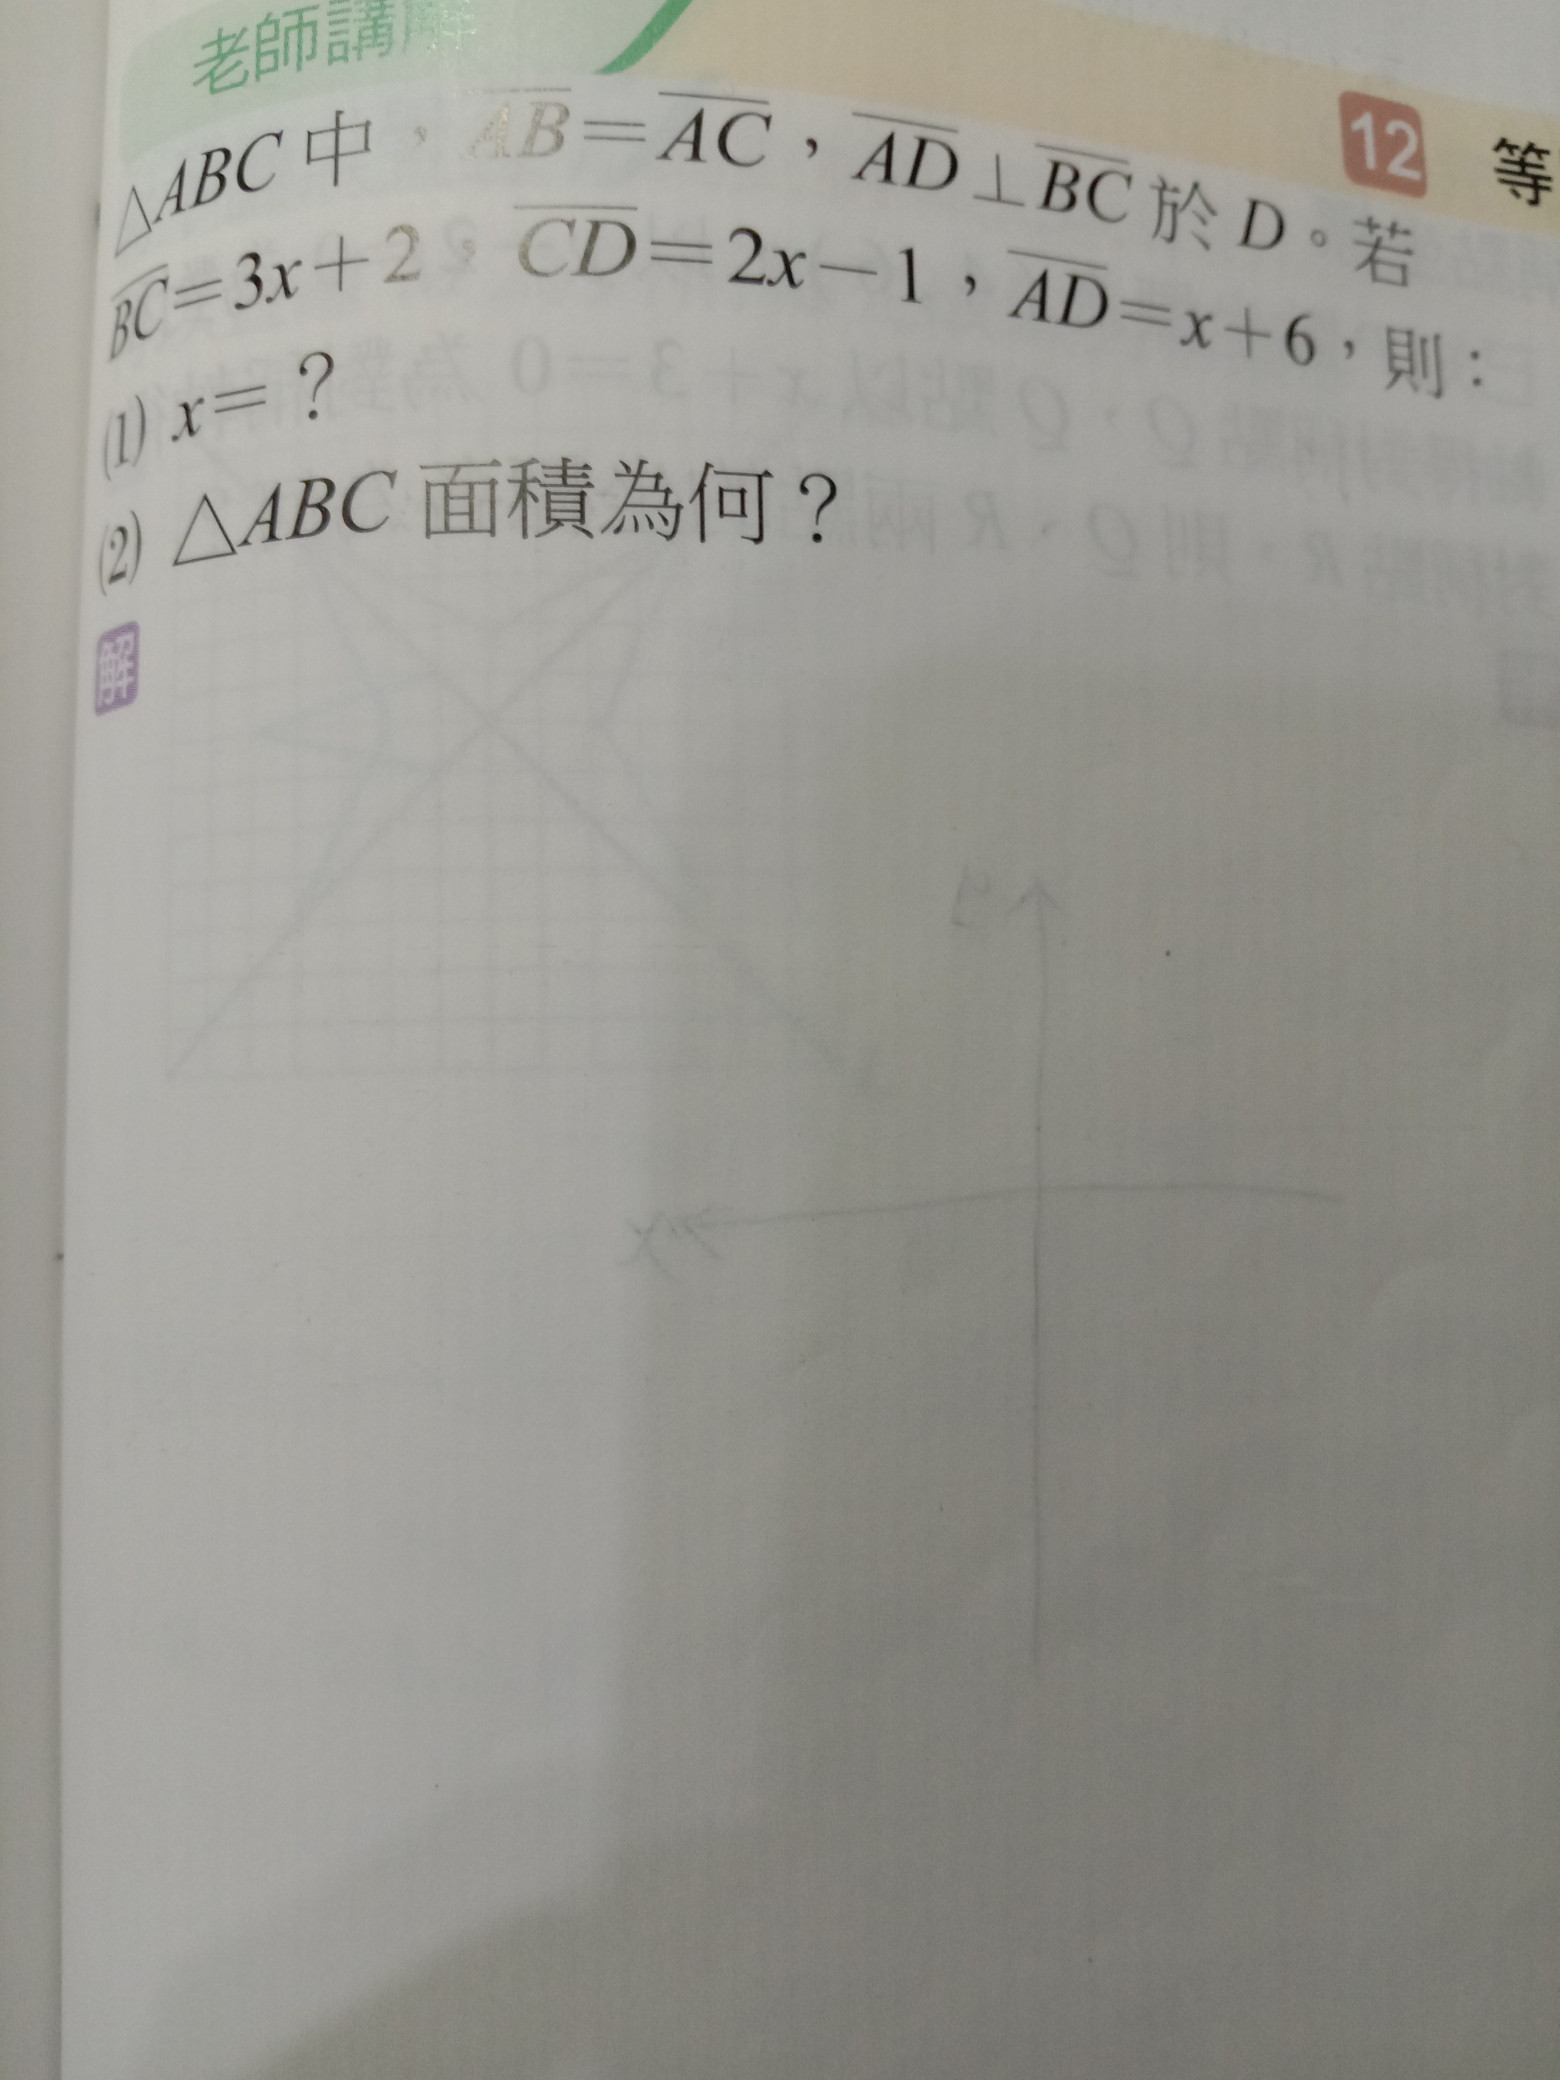 老師講解
12 等
△ABC 中，AB＝AC，AD⊥BC 於 D。若
BC＝3x＋2，CD＝2x－1，AD＝x＋6，則：
(1) x＝？
(2) △ABC 面積為何？
解
y
x